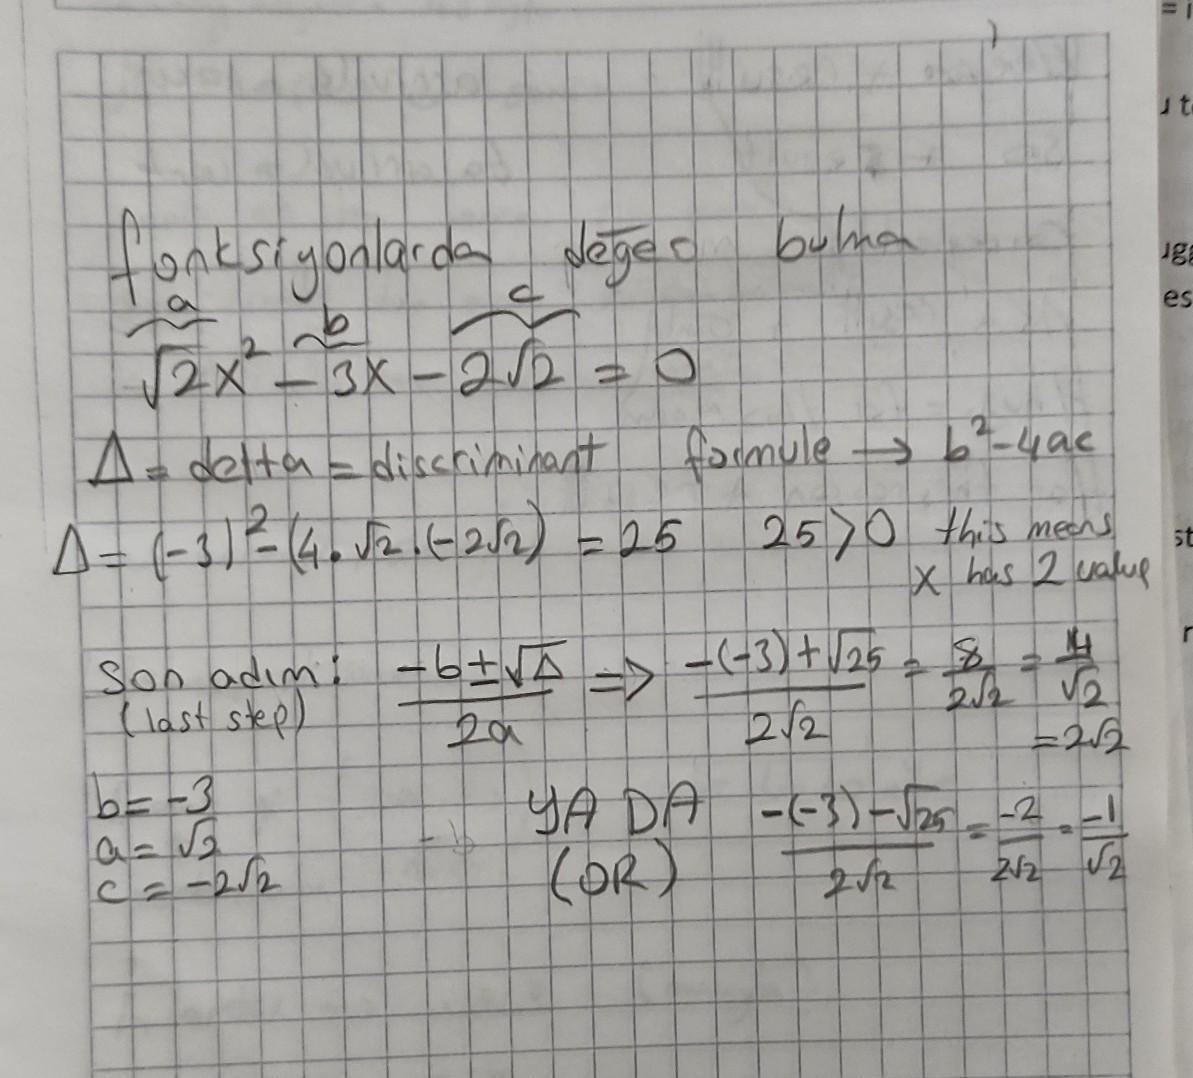 fonksiyonlarda değer bulma
a b c
√2x² - 3x - 2√2 = 0
Δ = delta = discriminant formule → b² - 4ac
Δ = (-3)² - (4.√2.(-2√2) = 25 25 > 0 this means
x has 2 value
Son adım: (-b ± √Δ)/2a => (-(-3) + √25)/2√2 = 8/2√2 = 4/√2
(last step) = 2√2
b = -3
a = √2
c = -2√2
YA DA (-(-3) - √25)/2√2 = -2/2√2 = -1/√2
(OR)